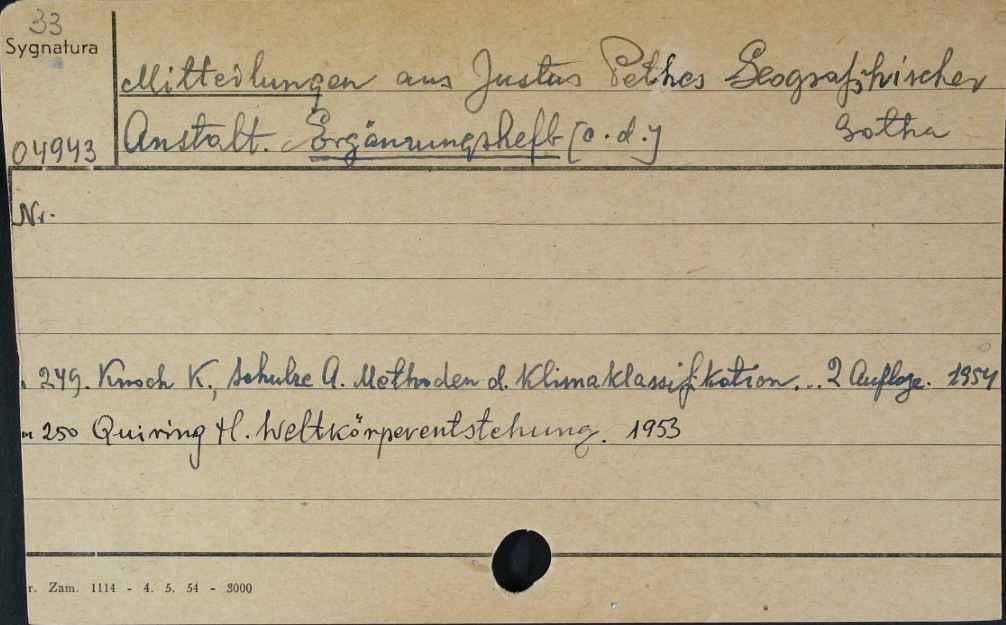 33
Sygnatura
Mitteilungen aus Justus Pethes Geographischer
04943 Anstalt. Ergänzungsheft [c.d.] Gotha
Nr.
249. Knoch K., Schulze A. Methoden d. Klimaklassifikation... 2 Auflage. 1954
250 Quiring H. Weltkörperentstehung. 1953
r. Zam. 1114 - 4. 5. 54 - 3000